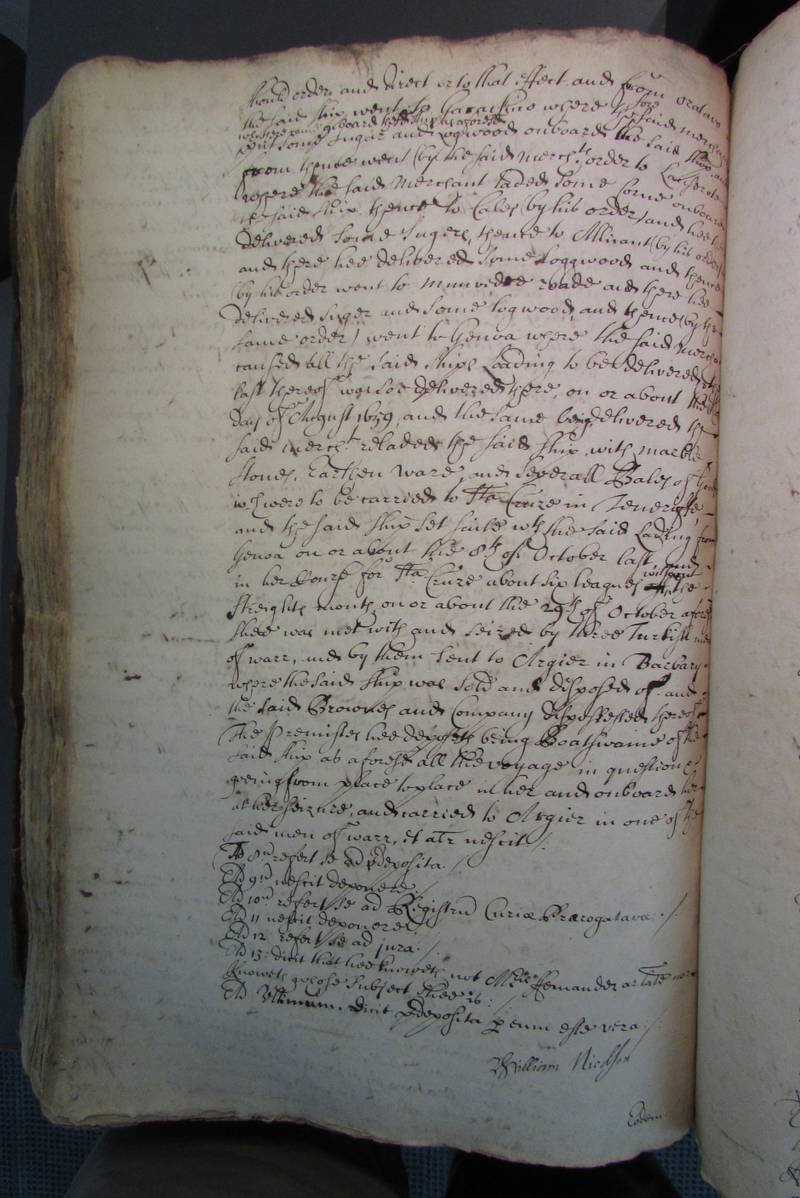 should order and direct or to that effect and from Oratavo
the said ship went to Garachico where the said merchant
put some sugar and logwood onboard the said ship and
from thence went (by the said merchts order to
where the said Merchant laded some some onboard
the said ship, thence to Cales (by his order) and hee
delivered some sugers, thence to Allicant (by his order)
and there hee delivered some Loggwood and thence
(by his order went to roade and there hee
delivered suger and some logwood, and thence (by the
same order) went to Genoa where the said merchant
caused all the said ships Loading to be delivered the
last thereof was soe delivered there, on or about the
day of August 1659, and the same being delivered the
said mercht reladed the said ship with marble
stones, Earthen ware and severall Bales of
wch were to be carried to Sta Cruze in Teneriffe
and the said ship set saile wth the said Lading from
Genoa on or about the 8th of October last, and
in her Course for Sta Cruze about six leagues without the
Streights mouth on or about the 29th of October aforesd
shee was met with and seized by three Turkish men
of warr, and by them sent to Argier in Barbary
where the said ship was sold and disposed of and
the said Browne and Company dispossessed thereof
The premisses hee deposeth being Boatswaine of the
said ship as aforesd all the voyage in question
goeing from place to place in her and onboard her
at her seizure, and carried to Argier in one of the
said men of warr, et alr nescit /:
To 8um refert se ad prdeposita. /
Ad 9um nescit deponere. /
Ad 10um refert se ad Registrum Curiæ Prærogativæ. /
Ad 11 nescit deponere. /
Ad 12 refert se ad jura. /
Ad 13 dicit that hee knoweth not Fernandes arlate nor
knoweth whose subject hee is: /
Ad ultimum. dicit prdeposita per eum esse vera. /
William Nickson
Eodem